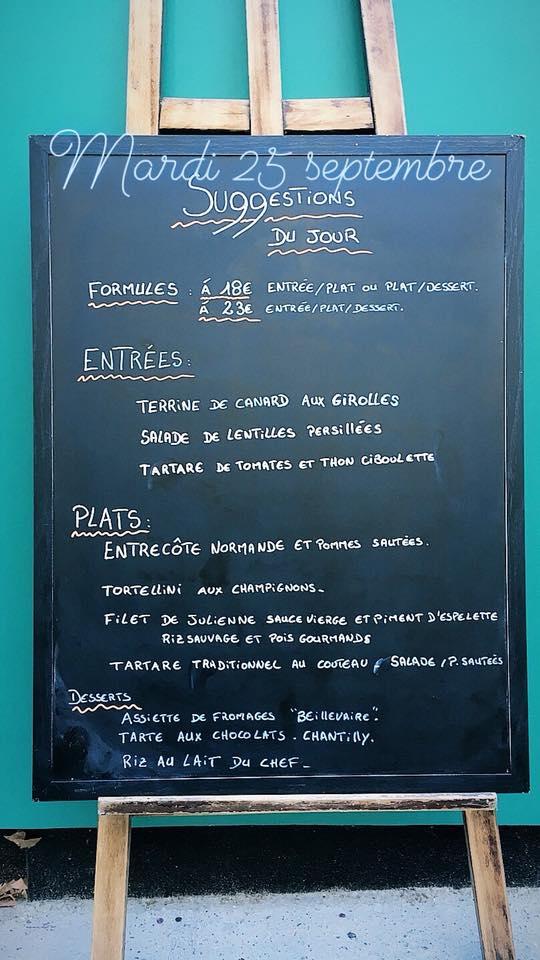 Mardi 25 septembre
SUGGESTIONS
DU JOUR
FORMULES : À 18€ ENTRÉE/PLAT OU PLAT/DESSERT.
À 23€ ENTRÉE/PLAT/DESSERT.
ENTRÉES:
TERRINE DE CANARD AUX GIROLLES
SALADE DE LENTILLES PERSILLÉES
TARTARE DE TOMATES ET THON CIBOULETTE
PLATS:
ENTRECÔTE NORMANDE ET POMMES SAUTÉES.
TORTELLINI AUX CHAMPIGNONS_
FILET DE JULIENNE SAUCE VIERGE ET PIMENT D'ESPELETTE
RIZ SAUVAGE ET POIS GOURMANDS
TARTARE TRADITIONNEL AU COUTEAU, SALADE /P. SAUTEÉS
DESSERTS
ASSIETTE DE FROMAGES "BEILLEVAIRE".
TARTE AUX CHOCOLATS - CHANTILLY.
RIZ AU LAIT DU CHEF_